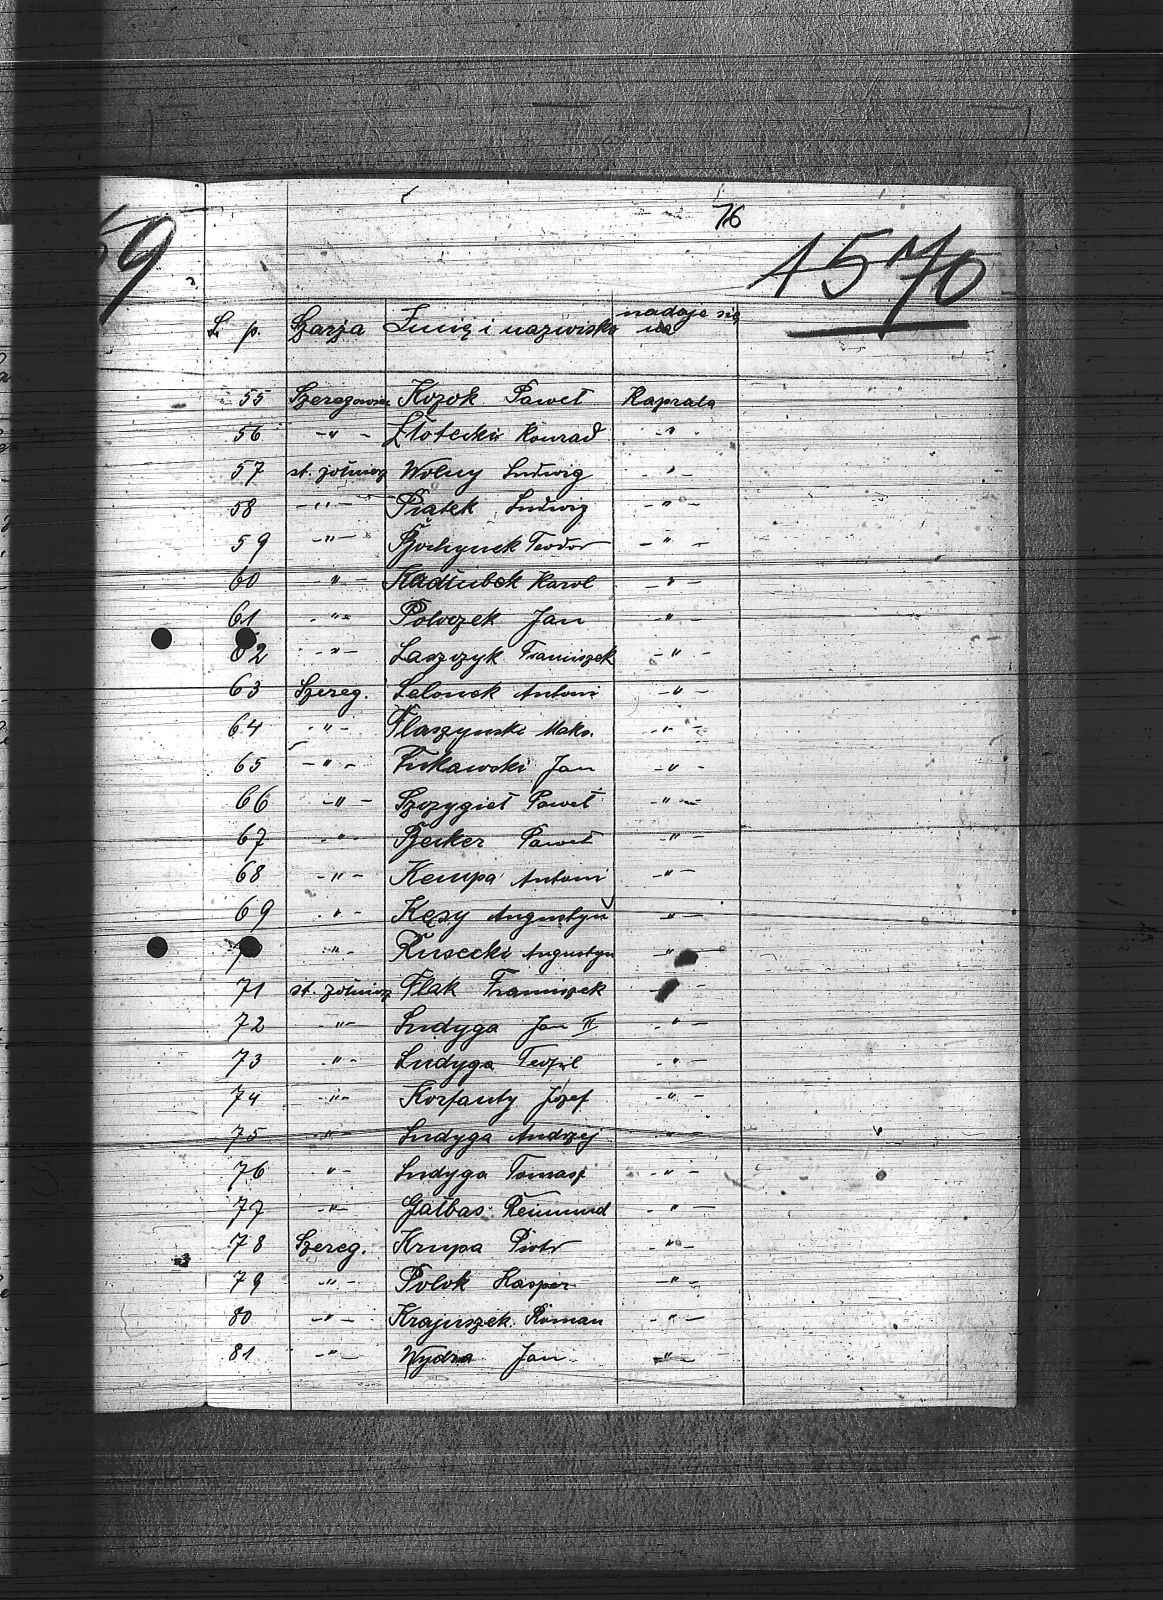 76
59
1570
L. p. Szarża Imię i nazwisko nadaje się na
55 Szeregowiec Kozok Paweł Kaprala
56 -"- Złotecki Konrad -"-
57 st. żołnierz Wolny Ludwig -"-
58 -"- Piątek Ludwig -"-
59 -"- Bochynek Teodor -"-
60 -"- Kadłubek Karol -"-
61 -"- Poloczek Jan -"-
62 -"- Laszczyk Franciszek -"-
63 Szereg. Lelonek Antoni -"-
64 -"- Flaszynski Maks. -"-
65 -"- Łukawski Jan -"-
66 -"- Szczygieł Paweł -"-
67 -"- Becker Paweł -"-
68 -"- Kempa Antoni -"-
69 -"- Kęsy Augustyn -"-
-"- Augustyn -"-
71 st. żołnierz Flak Franciszek -"-
72 -"- Ludyga Jan II -"-
73 -"- Ludyga Teofil -"-
74 -"- Korfanty Józef -"-
75 -"- Ludyga Andrzej -"-
76 -"- Ludyga Tomasz -"-
77 -"- Gałbas Reimund -"-
78 Szereg. Krupa Piotr -"-
79 -"- Polok Kasper -"-
80 -"- Krajuszek Roman -"-
81 -"- Wydra Jan -"-